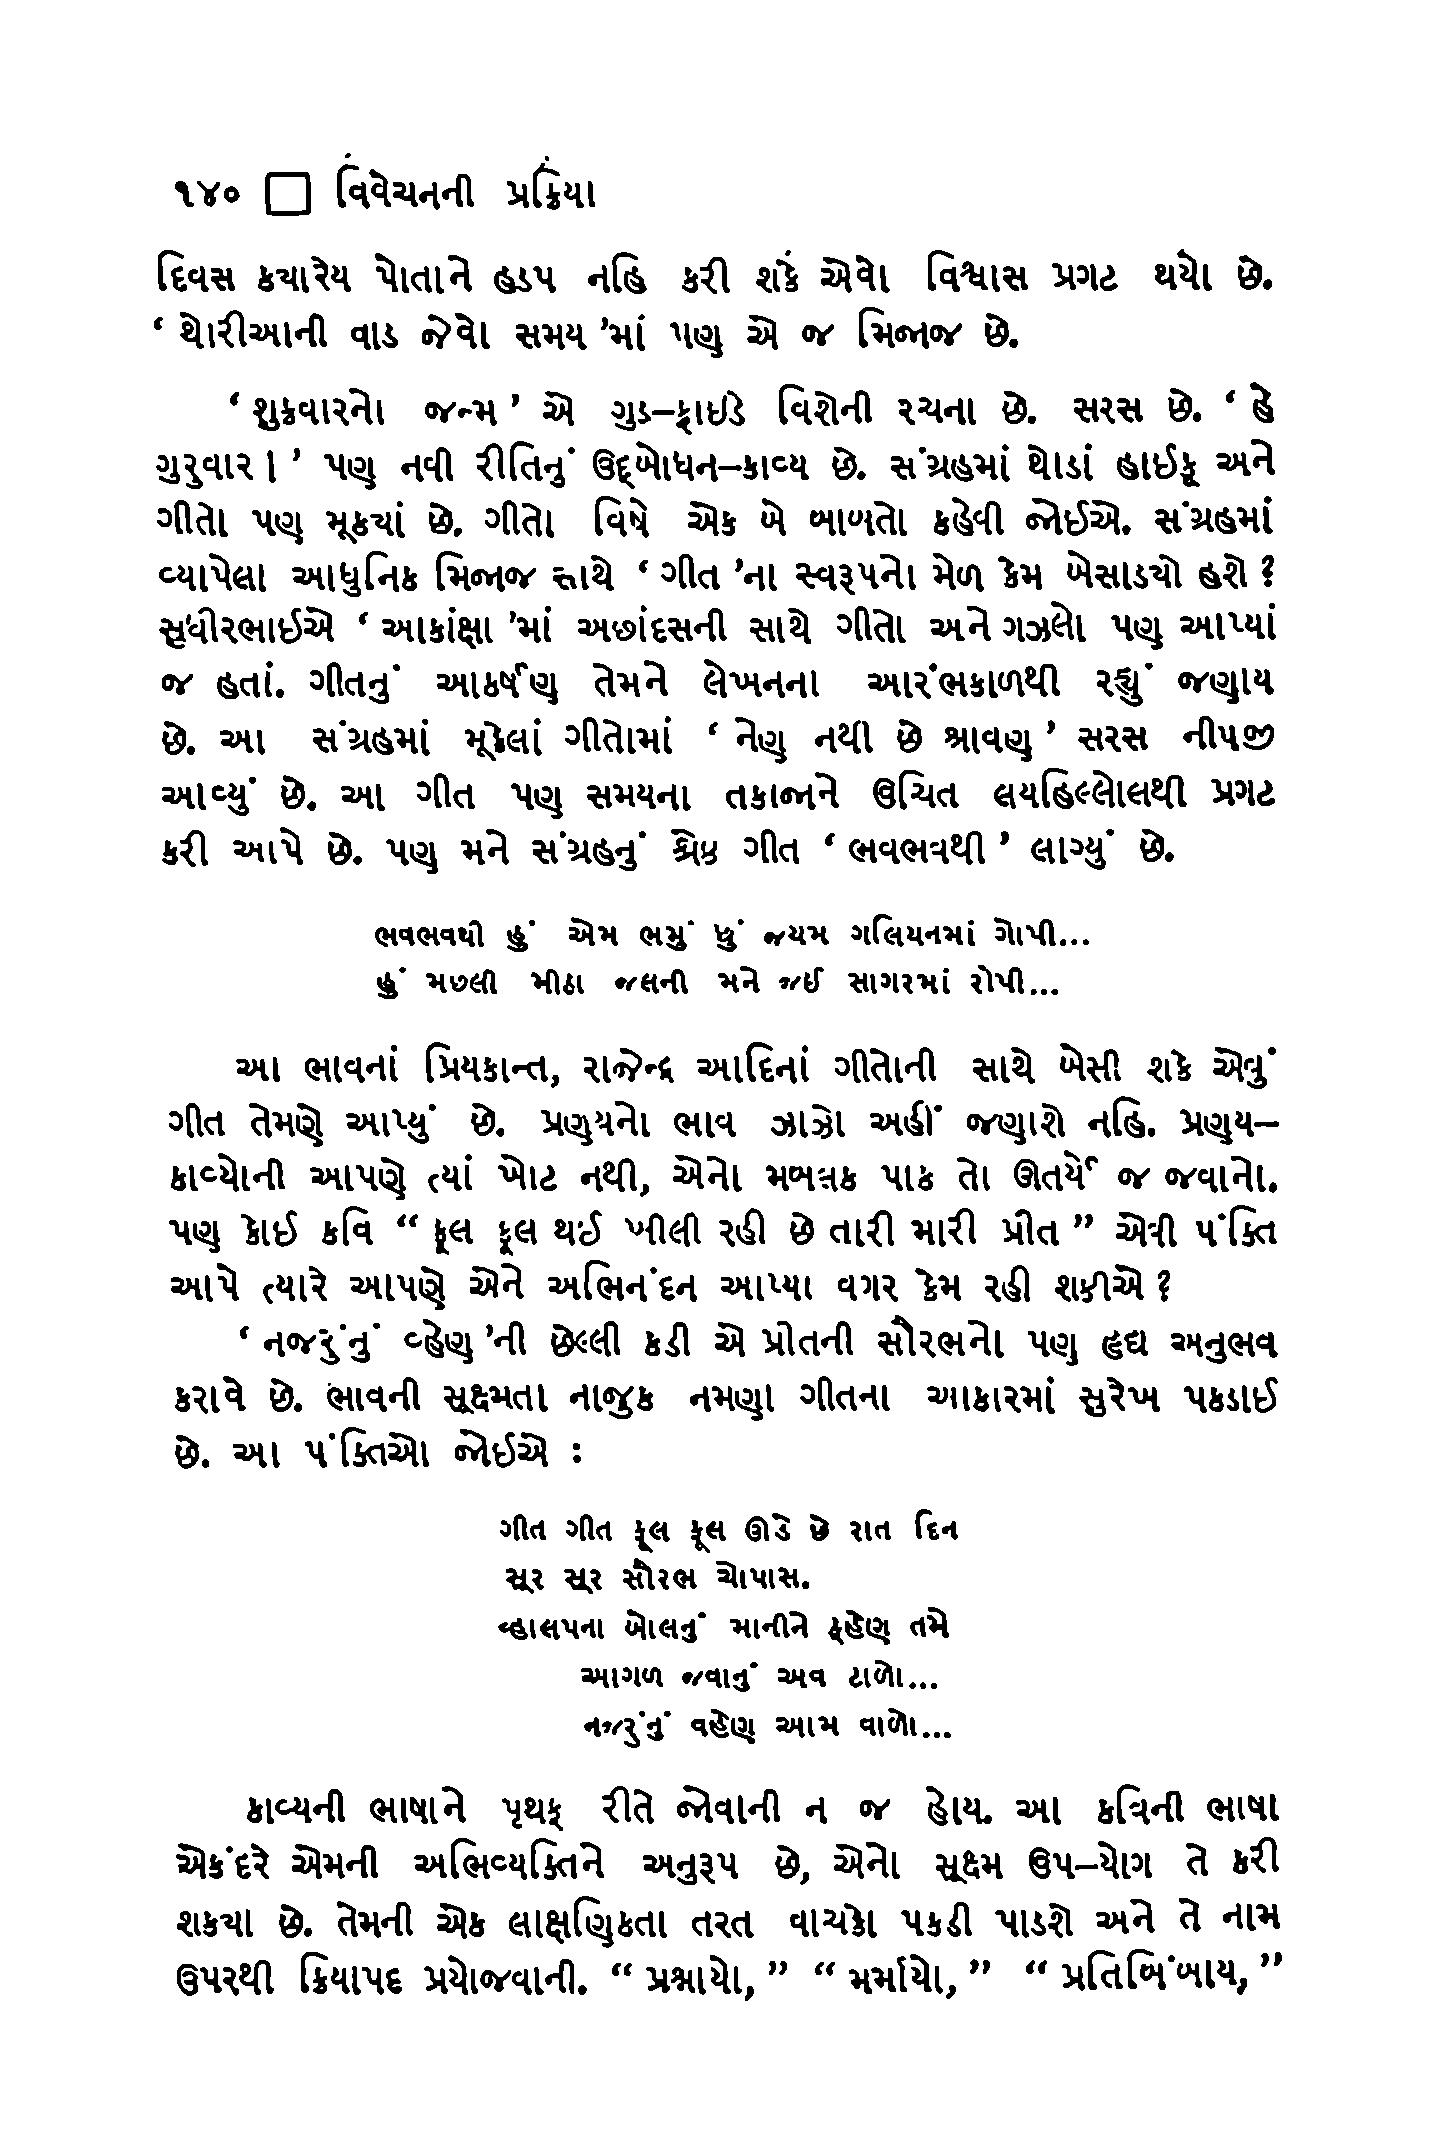 ૧૪૦ □ વિવેચનની પ્રક્રિયા
દિવસ ક્યારેય પોતાને હડપ નહિ કરી શકે એવો વિશ્વાસ પ્રગટ થયો છે.
‘ થોરીઆની વાડ જેવો સમય ’માં પણ એ જ મિજાજ છે.
‘ શુક્રવારનો જન્મ ’ એ ગુડ–ફ્રાઈડે વિશેની રચના છે. સરસ છે. ‘ હે
ગુરુવાર ! ’ પણ નવી રીતિનું ઉદ્‌બોધન–કાવ્ય છે. સંગ્રહમાં થોડાં હાઈકૂ અને
ગીતો પણ મૂક્યાં છે. ગીતો વિષે એક બે બાબતો કહેવી જોઈએ. સંગ્રહમાં
વ્યાપેલા આધુનિક મિજાજ સાથે ‘ ગીત ’ના સ્વરૂપનો મેળ કેમ બેસાડ્યો હશે ?
સુધીરભાઈએ ‘ આકાંક્ષા ’માં અછાંદસની સાથે ગીતો અને ગઝલો પણ આપ્યાં
જ હતાં. ગીતનું આકર્ષણ તેમને લેખનના આરંભકાળથી રહ્યું જણાય
છે. આ સંગ્રહમાં મૂકેલાં ગીતોમાં ‘ નેણ નથી છે શ્રાવણ ’ સરસ નીપજી
આવ્યું છે. આ ગીત પણ સમયના તકાજાને ઉચિત લયહિલ્લોલથી પ્રગટ
કરી આપે છે. પણ મને સંગ્રહનું શ્રેષ્ઠ ગીત ‘ ભવભવથી ’ લાગ્યું છે.
ભવભવથી હું એમ ભમું છું જ્યમ ગલિયનમાં ગોપી...
હું મછલી મીઠા જલની મને જઈ સાગરમાં રોપી...
આ ભાવનાં પ્રિયકાન્ત, રાજેન્દ્ર આદિનાં ગીતોની સાથે બેસી શકે એવું
ગીત તેમણે આપ્યું છે. પ્રણયનો ભાવ ઝાઝો અહીં જણાશે નહિ. પ્રણય–
કાવ્યોની આપણે ત્યાં ખોટ નથી, એનો મબલક પાક તો ઊતર્યે જ જવાનો.
પણ કોઈ કવિ “ ફૂલ ફૂલ થઈ ખીલી રહી છે તારી મારી પ્રીત ” એવી પંક્તિ
આપે ત્યારે આપણે એને અભિનંદન આપ્યા વગર કેમ રહી શકીએ ?
‘ નજરુંનું વ્હેણ ’ની છેલ્લી કડી એ પ્રીતની સૌરભનો પણ હૃદ્ય અનુભવ
કરાવે છે. ભાવની સૂક્ષ્મતા નાજુક નમણા ગીતના આકારમાં સુરેખ પકડાઈ
છે. આ પંક્તિઓ જોઈએ :
ગીત ગીત ફૂલ ફૂલ ઊડે છે રાત દિન
સૂર સૂર સૌરભ ચોપાસ.
વ્હાલપના બોલનું માનીને ક્‌હેણ તમે
આગળ જવાનું અવ ટાળો...
નજરુંનું વહેણ આમ વાળો...
કાવ્યની ભાષાને પૃથક્ રીતે જોવાની ન જ હોય. આ કવિની ભાષા
એકંદરે એમની અભિવ્યક્તિને અનુરૂપ છે, એનો સૂક્ષ્મ ઉપ–યોગ તે કરી
શક્યા છે. તેમની એક લાક્ષણિકતા તરત વાચકો પકડી પાડશે અને તે નામ
ઉપરથી ક્રિયાપદ પ્રયોજવાની. “ પ્રશ્નાયો, ” “ મર્માયો, ” “ પ્રતિબિંબાય, ”